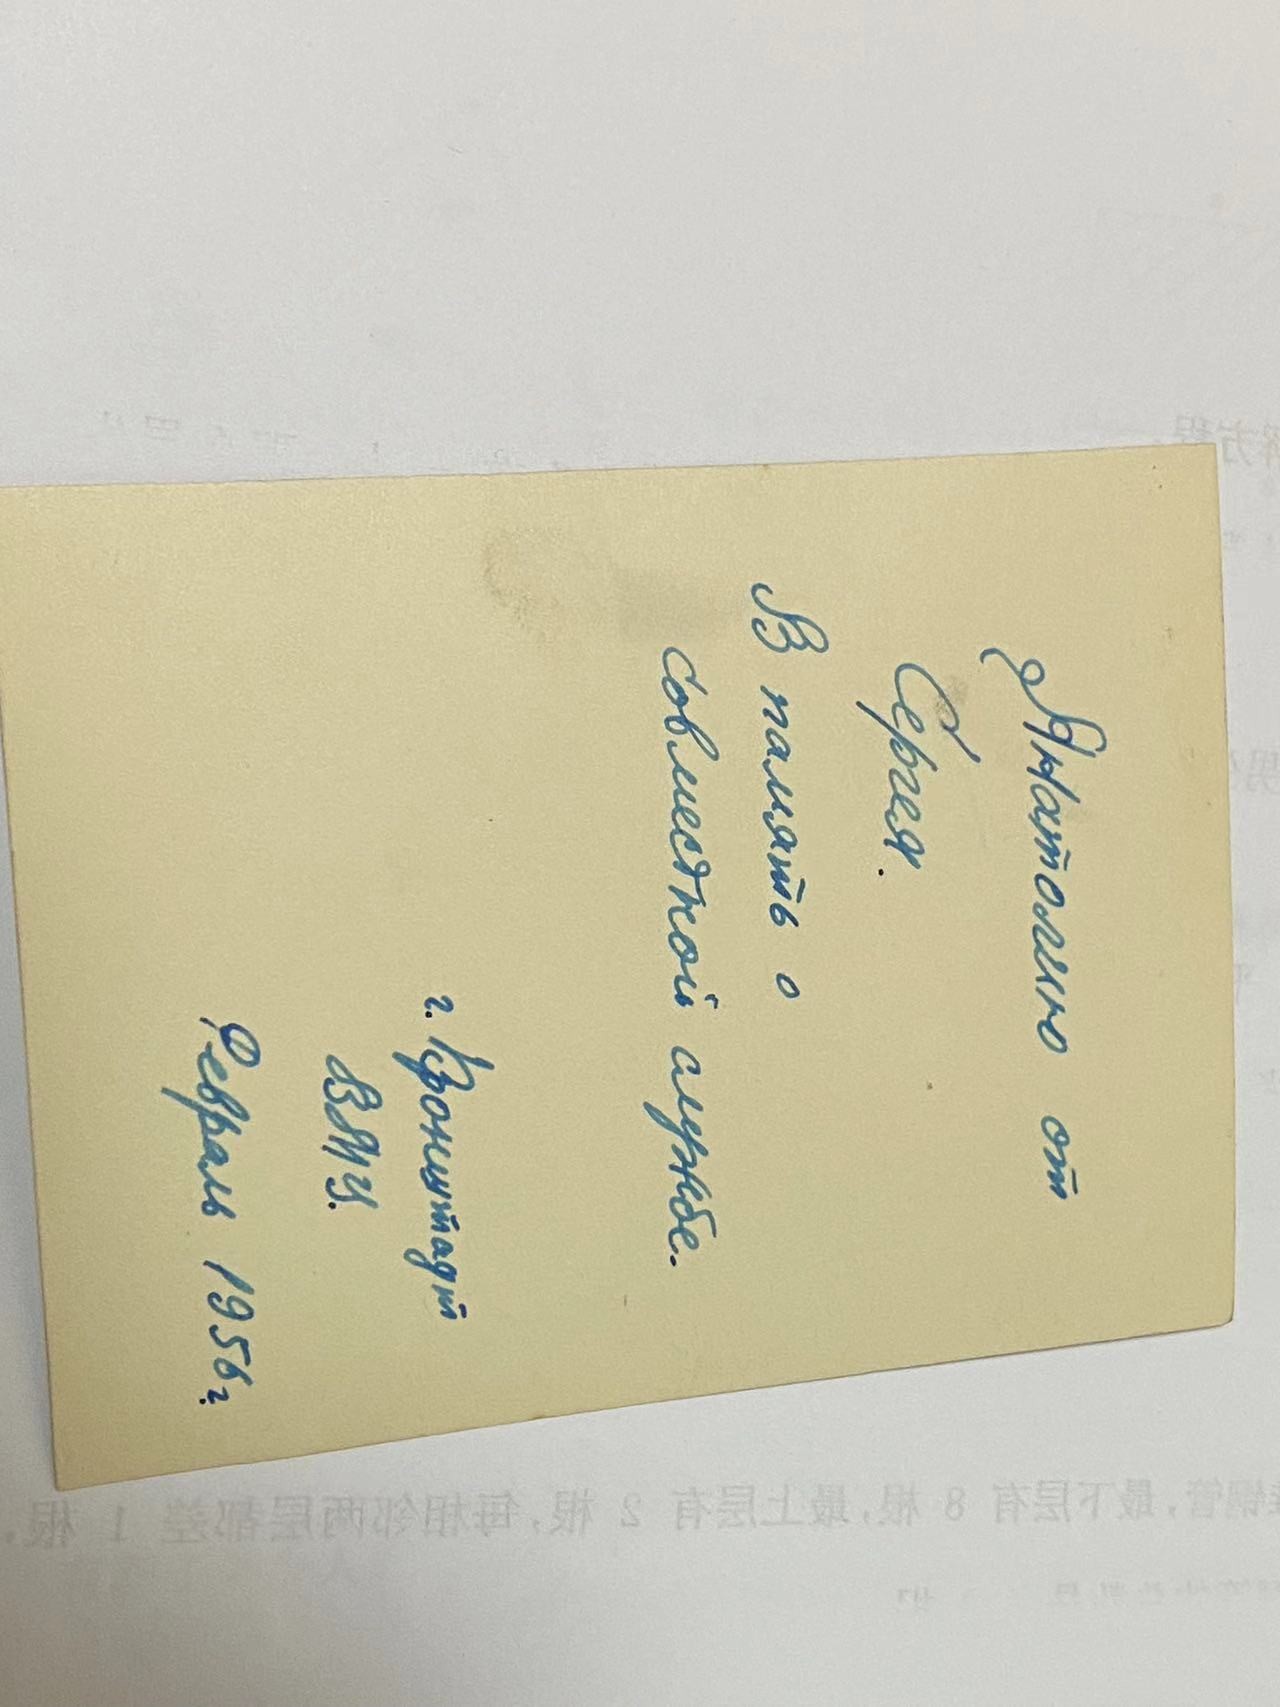 Анатолию от
Сергея.
В память о
совместной службе.
г. Кронштадт
ВМУ.
Февраль 1956г.
根钢管,最下层有 8 根,最上层有 2 根,每相邻两层都差 1 根,